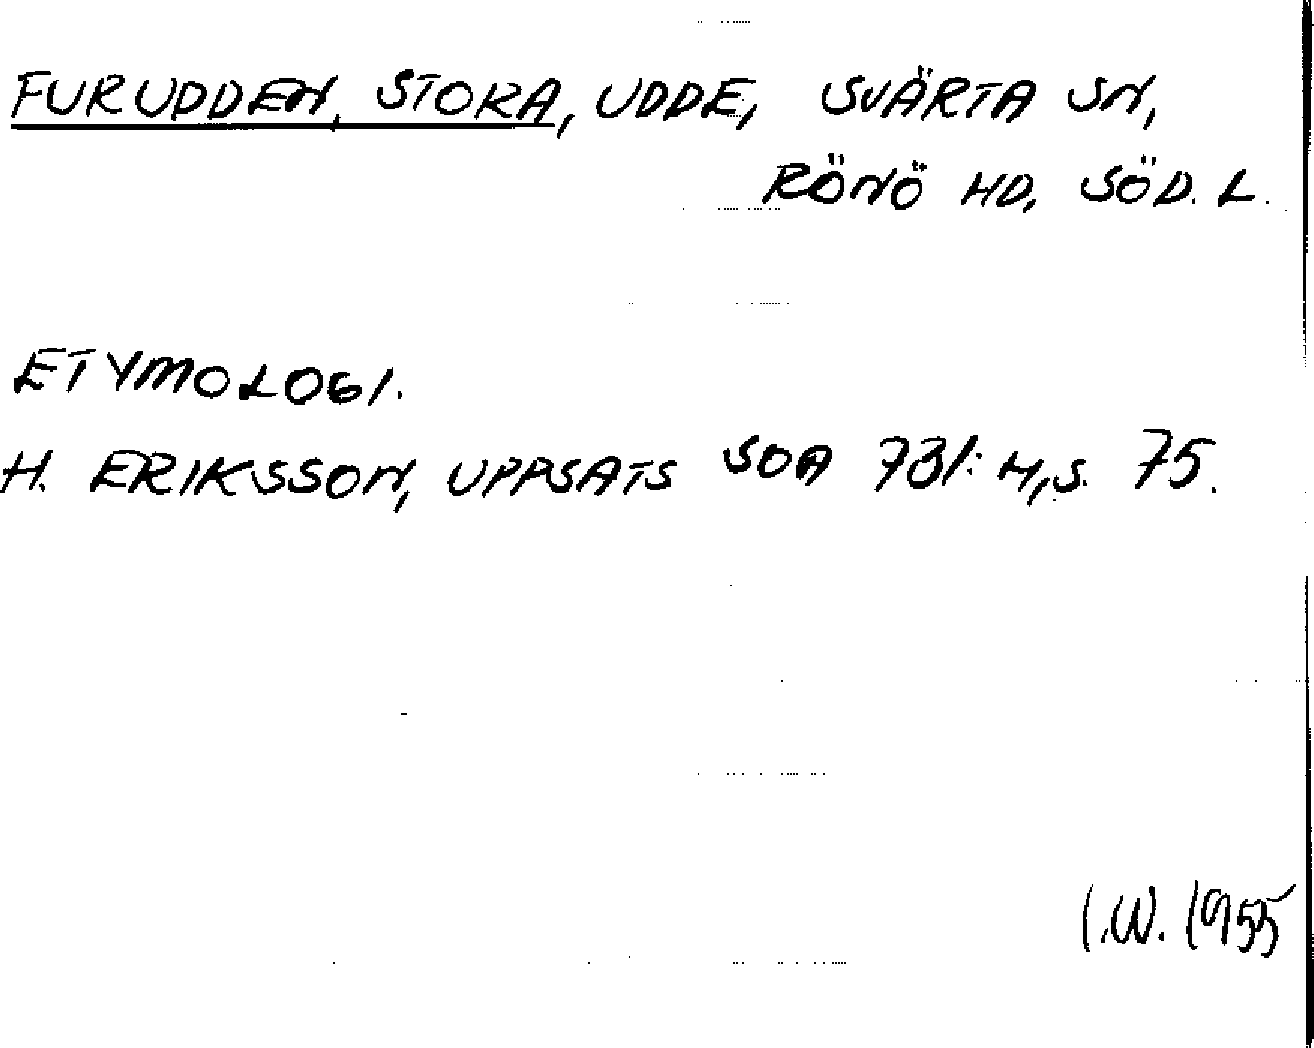 FURUDDEN, STORA, UDDE, SVÄRTA SN,
RÖNÖ HD, SÖD. L.
ETYMOLOGI.
H. ERIKSSON, UPPSATS SOA 731: H, S. 75.
I.W. 1955